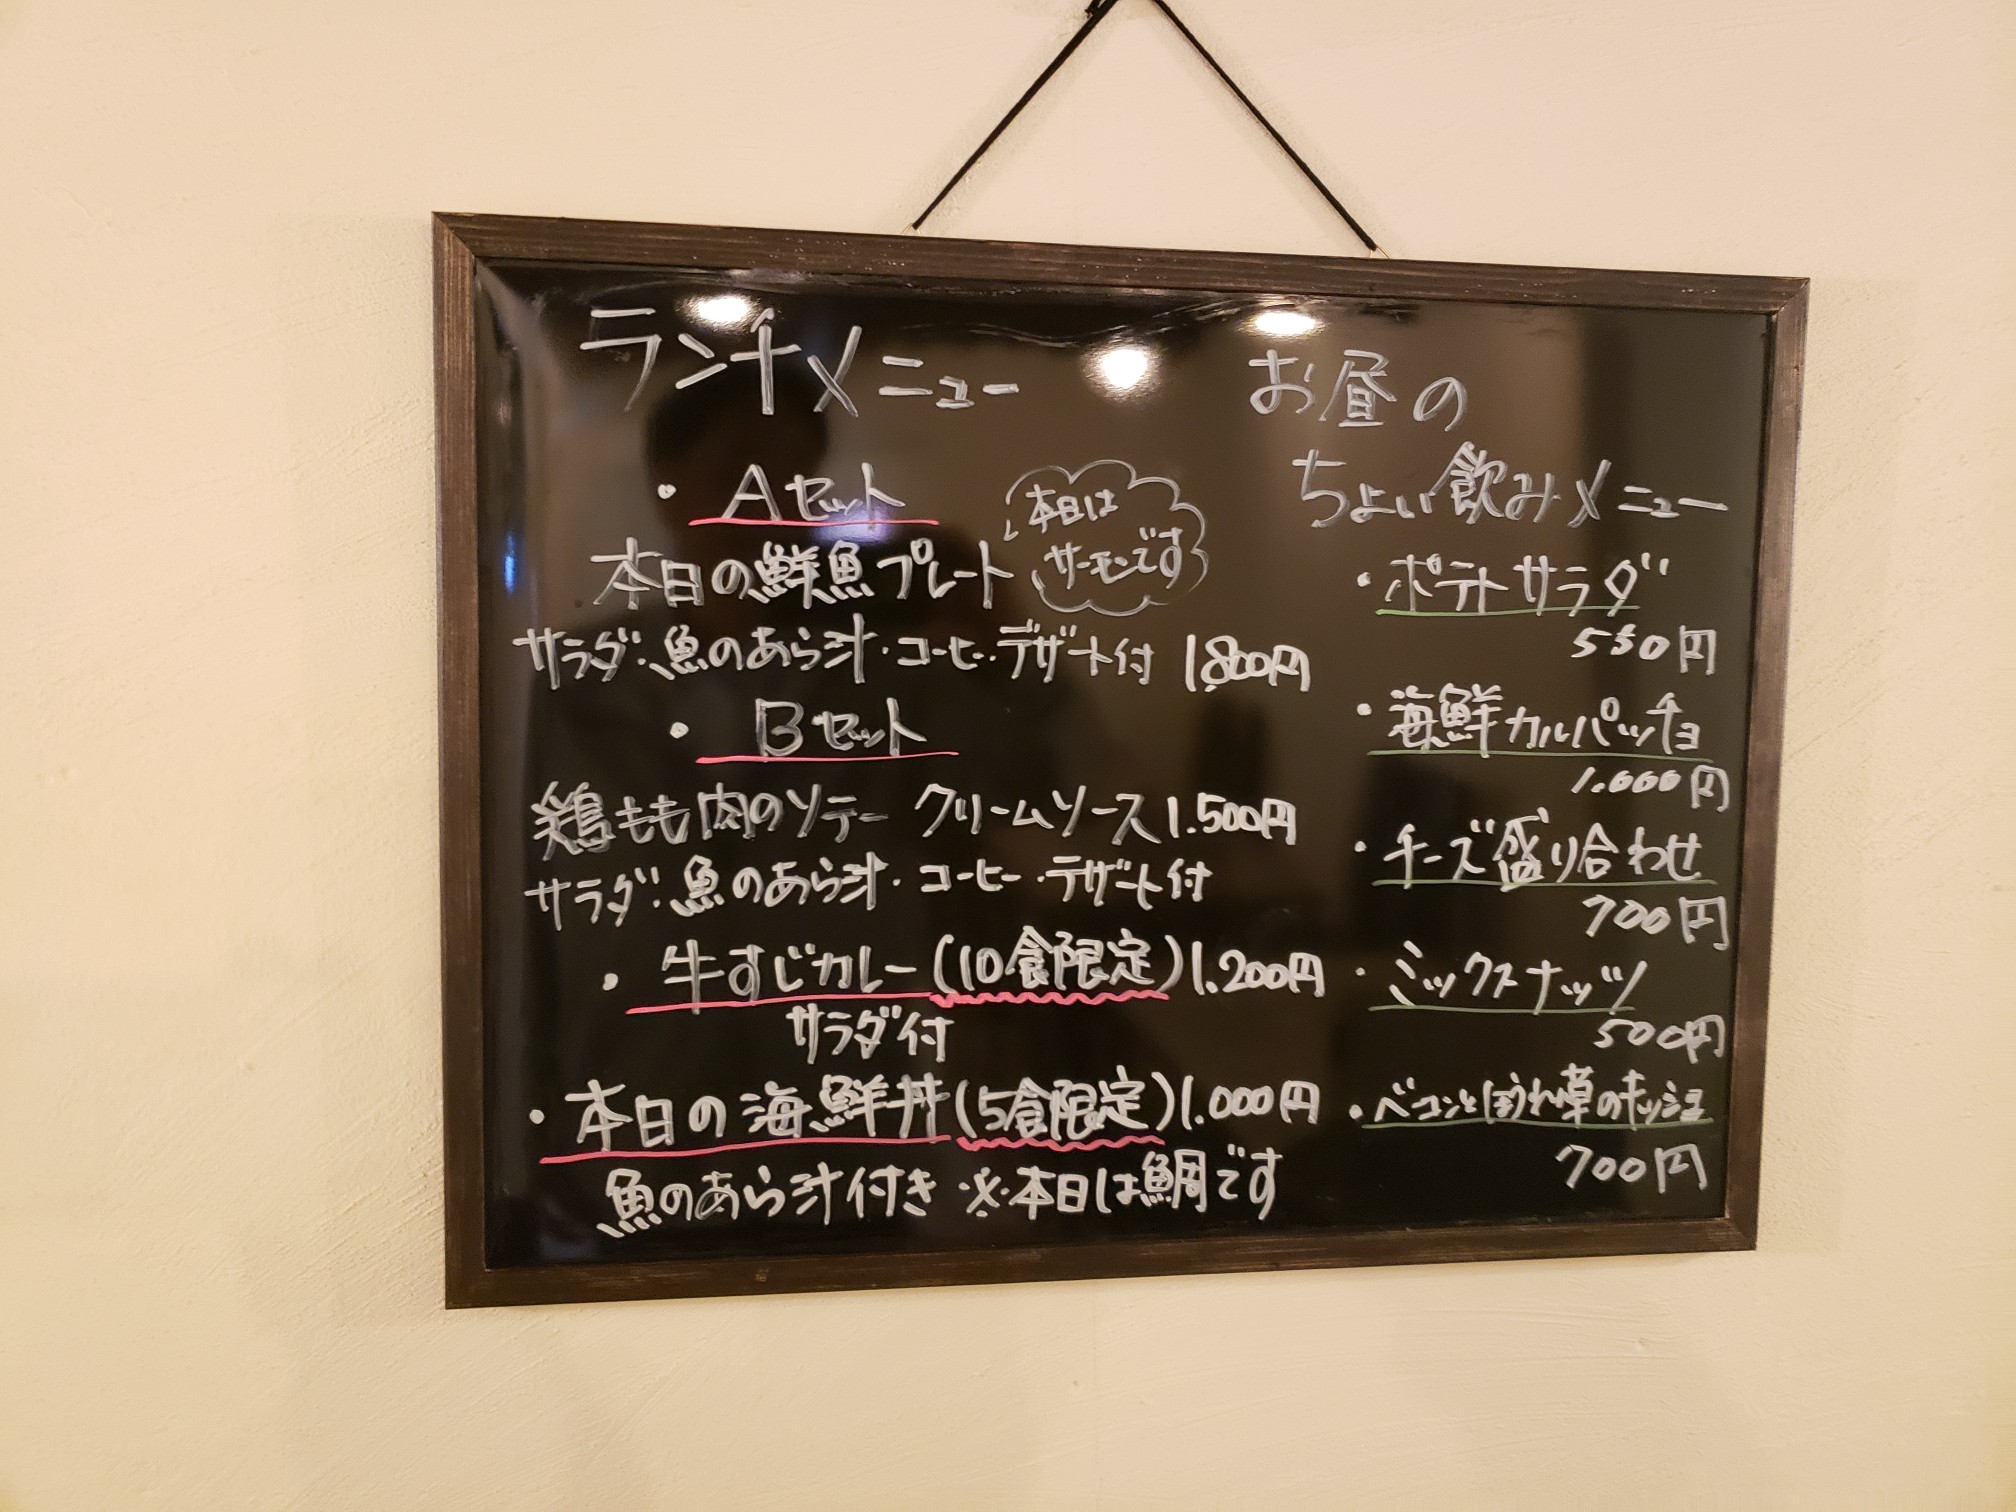 ランチメニュー
・Aセット
本日の鮮魚プレート
本日は
サーモンです
サラダ・魚のあら汁・コーヒー・デザート付 1,800円
・Bセット
鶏もも肉のソテー クリームソース 1.500円
サラダ・魚のあら汁・コーヒー・デザート付
・牛すじカレー(10食限定)1.200円
サラダ付
・本日の海鮮丼(5食限定)1.000円
魚のあら汁付き ※本日は鯛です
お昼の
ちょい飲みメニュー
・ポテトサラダ
550円
・海鮮カルパッチョ
1.000円
・チーズ盛り合わせ
700円
・ミックスナッツ
500円
・ベーコンとほうれん草のキッシュ
700円